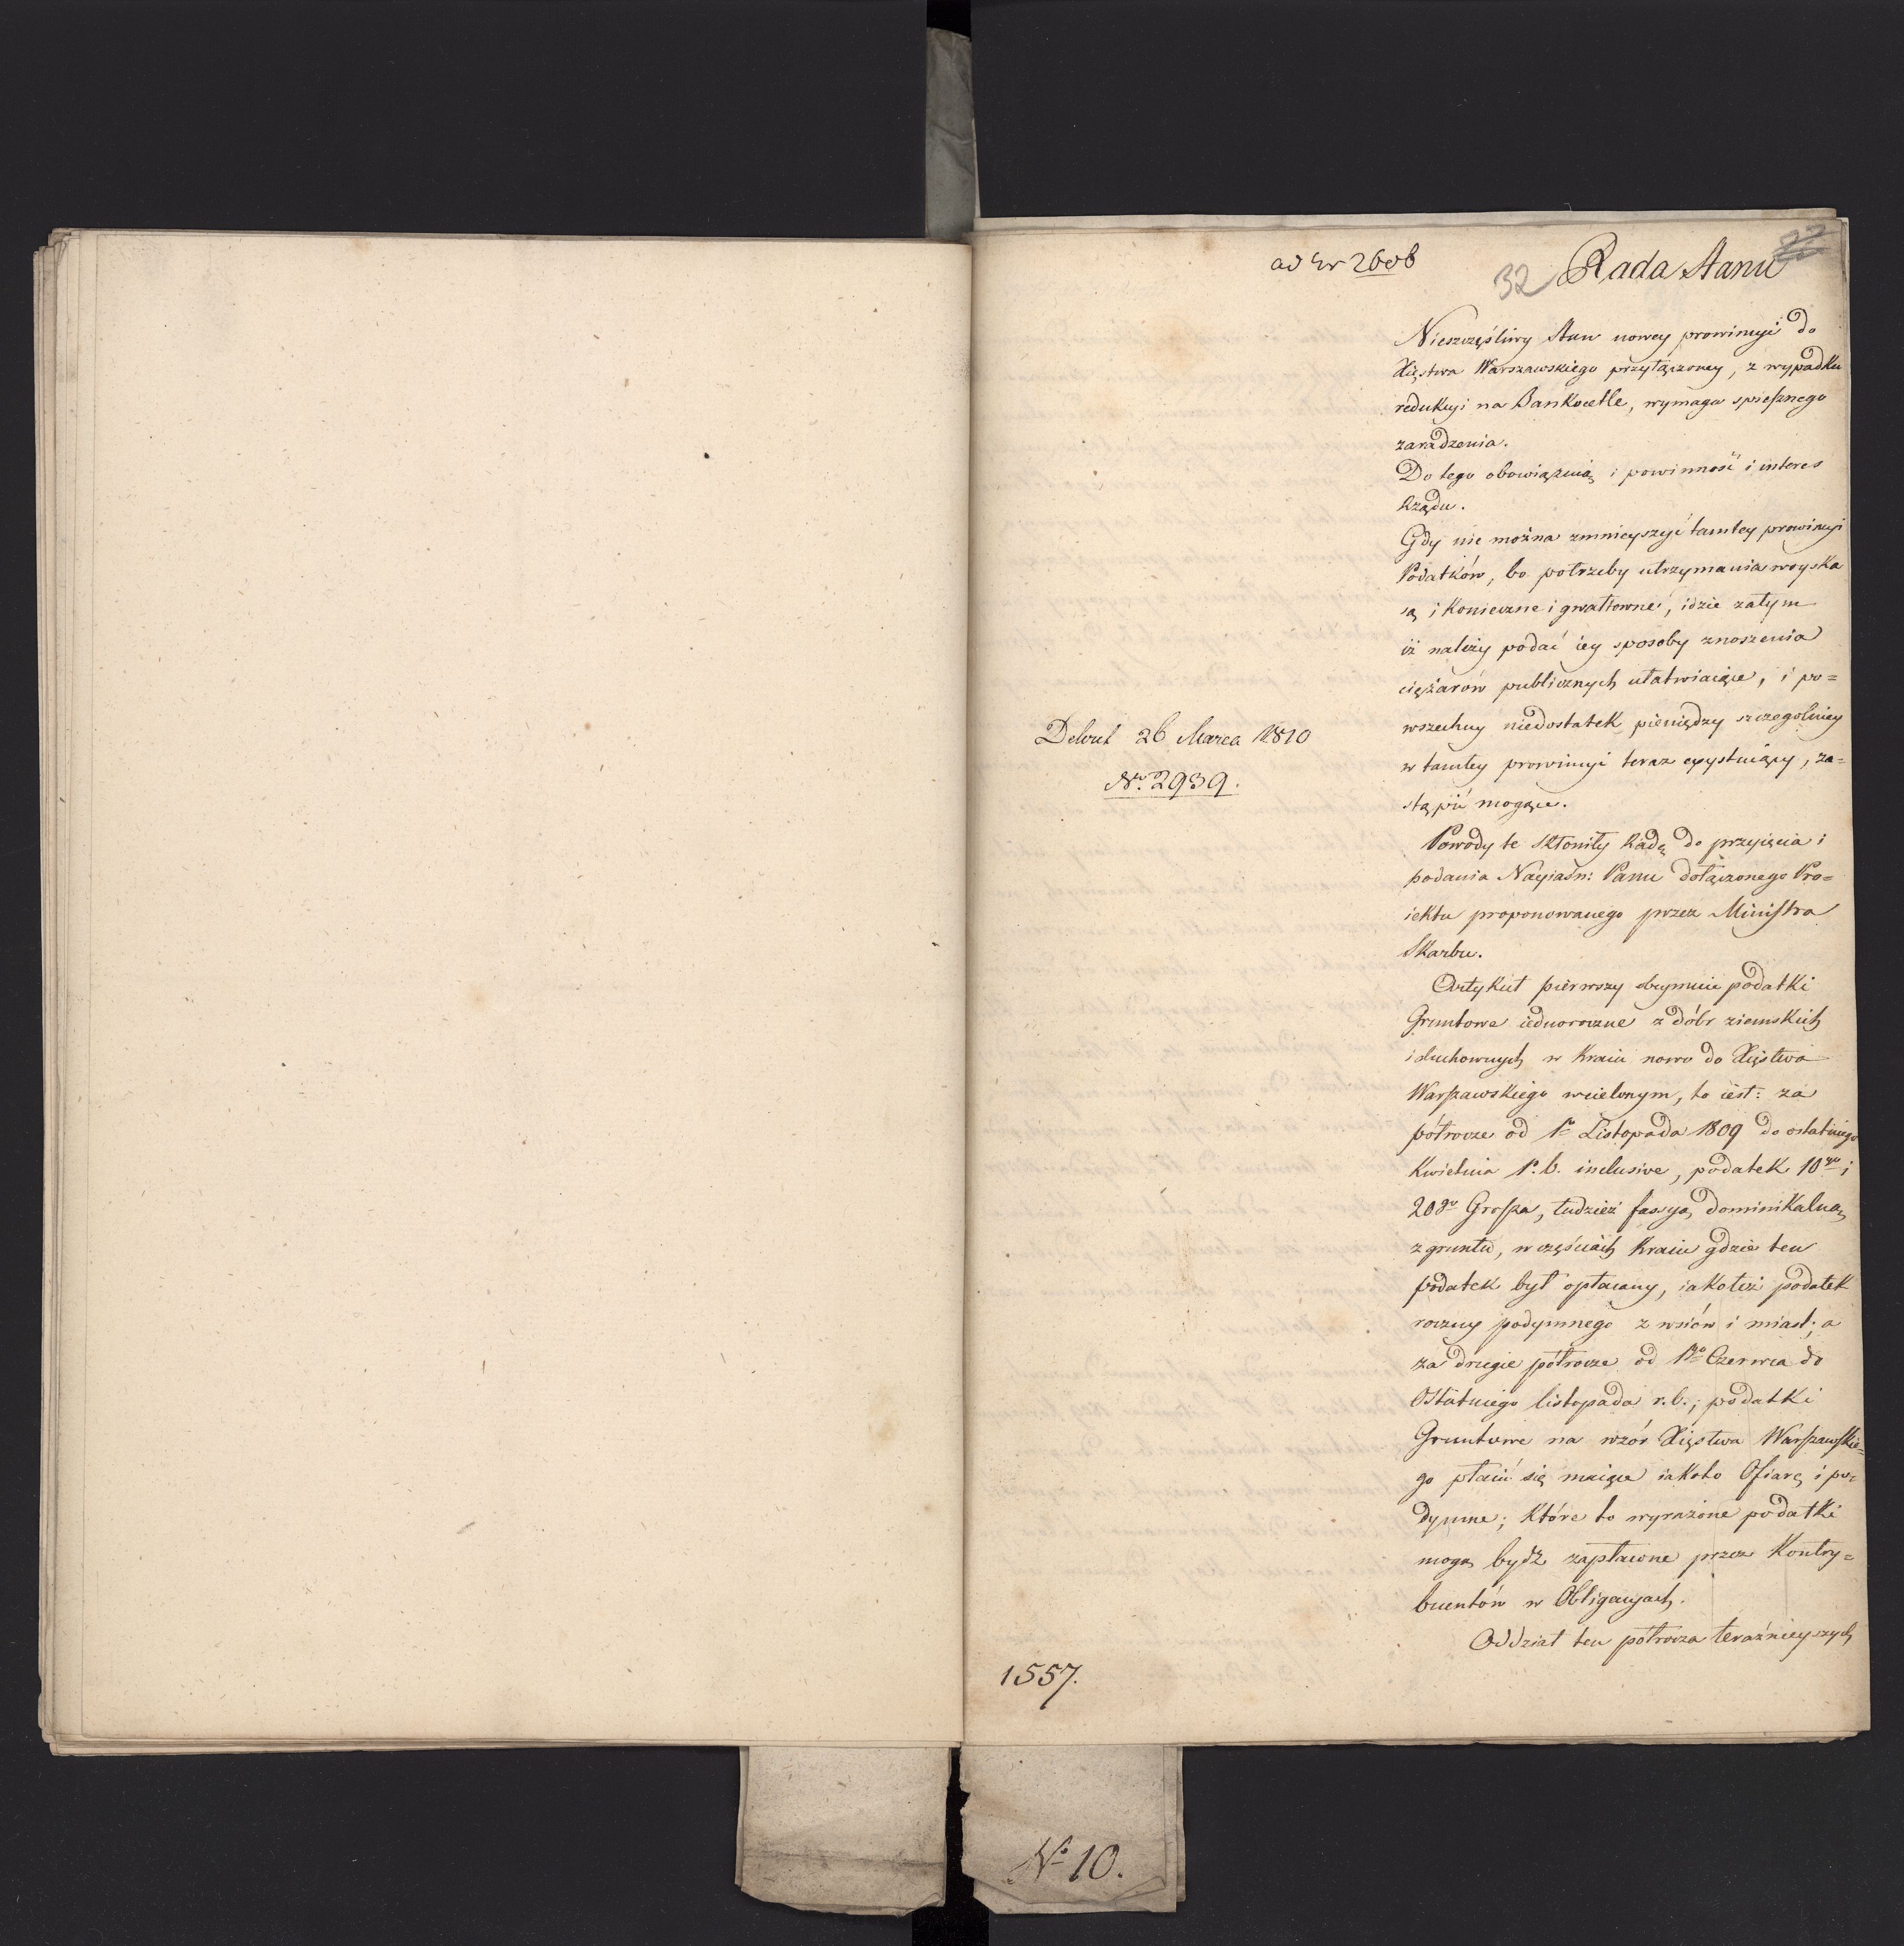 ad Nr 2606
32
22
Rada Stanu
Nieszczęśliwy Stan nowey prowincyi do
Xięstwa Warszawskiego przyłączoney, z wypadku
redukcyi na Bankocetle, wymaga spiesznego
zaradzenia.
Do tego obowiązuią i powinność i interes
Rządu.
Gdy nie można zmnieyszyć tamtey prowincyi
Podatków, bo potrzeby utrzymania woyska
są i konieczne i gwałtowne, idzie zatym
iż należy podać iey sposoby znoszenia
ciężarów publicznych ułatwiaiące, i po=
wszechny niedostatek pieniędzy szczegolniey
w tamtey prowincyi teraz exystuiący, za=
stąpić mogące.
Dekret 26 Marca 1810
Nr. 2939.
Powody te skłoniły Radę do przyięcia i
podania Nayiaśn: Panu dołączonego Pro=
iektu proponowanego przez Ministra
Skarbu.
Artykuł pierwszy obeymuie podatki
Gruntowe iednoroczne z dóbr ziemskich
i duchownych w Kraiu nowo do Xięstwa
Warszawskiego wcielonym, to iest: za
półrocze od 1o Listopada 1809 do ostatniego
Kwietnia r. b. inclusive, podatek 10go i
20go Grosza, tudzież fassyą dominikalną
z gruntu, w częściach Kraiu gdzie ten
podatek był opłacany, iakoteż podatek
roczny podymnego z wsiów i miast; a
za drugie półrocze od 1go Czerwca do
Ostatniego listopada r. b.; podatki
Gruntowe na wzór Xięstwa Warszawskie=
go płacić się maiące iakoto Ofiarę i po=
dymne; które to wyrażone podatki
mogą bydź zapłacone przez Kontry=
buentów w Obligacyach.
Oddział ten półrocza teraźnieyszych
1557.
No 10.